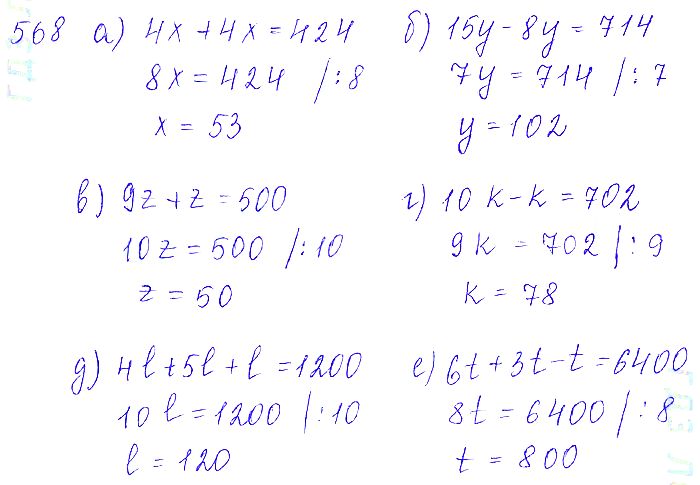 568 а) 4x + 4x = 424
8x = 424 /:8
x = 53
б) 15y - 8y = 714
7y = 714 /:7
y = 102
в) 9z + z = 500
10z = 500 /:10
z = 50
г) 10k - k = 702
9k = 702 /:9
k = 78
д) 4l + 5l + l = 1200
10l = 1200 /:10
l = 120
е) 6t + 3t - t = 6400
8t = 6400 /:8
t = 800